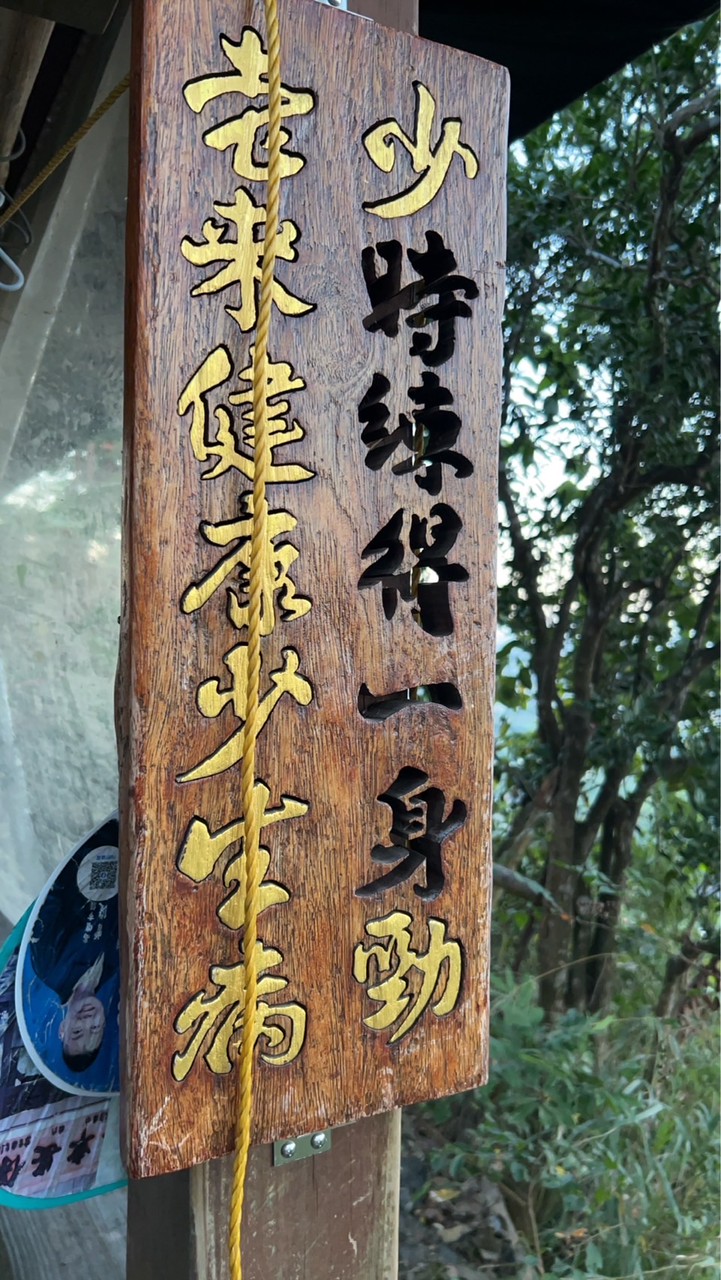 少時練得一身勁
老來健康少生病